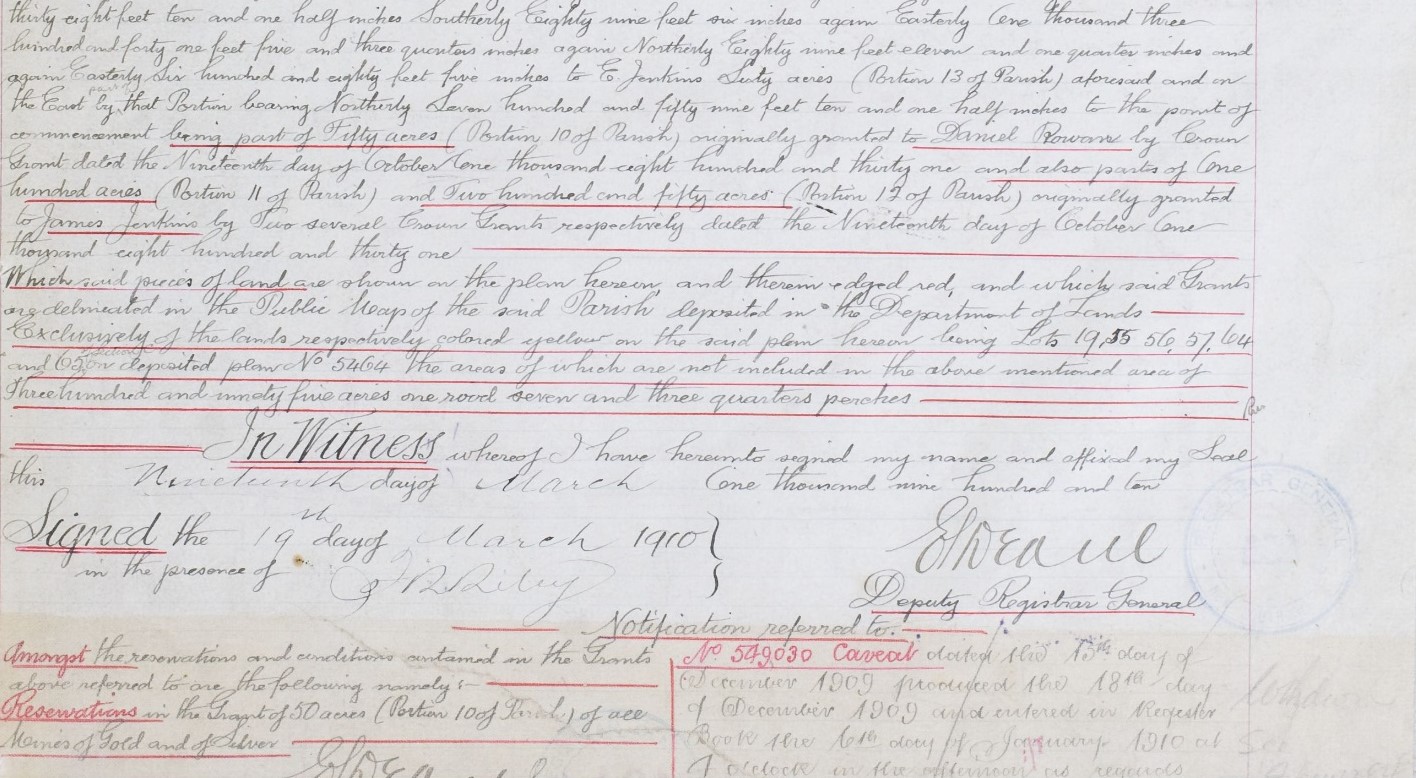 thirty eight feet ten and one half inches Southerly Eighty nine feet six inches again Easterly One thousand three
hundred and forty one feet five and three quarters inches again Northerly Eighty nine feet eleven and one quarter inches and
again Easterly Six hundred and eighty feet five inches to E. Jenkins Sixty acres (Portion 13 of Parish) aforesaid and on
the East by part of that Portion bearing Northerly Seven hundred and fifty nine feet ten and one half inches to the point of
commencement being part of Fifty acres (Portion 10 of Parish) originally granted to Daniel Rowan by Crown
Grant dated the Nineteenth day of October One thousand eight hundred and thirty one and also parts of One
hundred acres (Portion 11 of Parish) and Two hundred and fifty acres (Portion 12 of Parish) originally granted
to James Jenkins by Two several Crown Grants respectively dated the Nineteenth day of October One
thousand eight hundred and thirty one
Which said pieces of land are shown on the plan hereon, and therein edged red, and which said Grants
are delineated in the Public Map of the said Parish deposited in the Department of Lands
Exclusively of the lands respectively colored yellow on the said plan hereon being Lots 19, 55 56, 57, 64
and 65 on deposited plan No 5464 the areas of which are not included in the above mentioned area of
Three hundred and ninety five acres one rood seven and three quarters perches
In Witness whereof I have hereunto signed my name and affixed my Seal
this Nineteenth day of March One thousand nine hundred and ten
Signed the 19th day of March 1910
in the presence of
Deputy Registrar General
Notification referred to.
Amongst the reservations and conditions contained in the Grants
above referred to are the following namely:-
Reservations in the Grant of 50 acres (Portion 10 of Parish) of all
Mines of Gold and of Silver
No. 549030 Caveat dated the 15th day of
December 1909 produced the 18th day
of December 1909 and entered in Register
Book the 6th day of January 1910 at
o'clock in the afternoon as regards